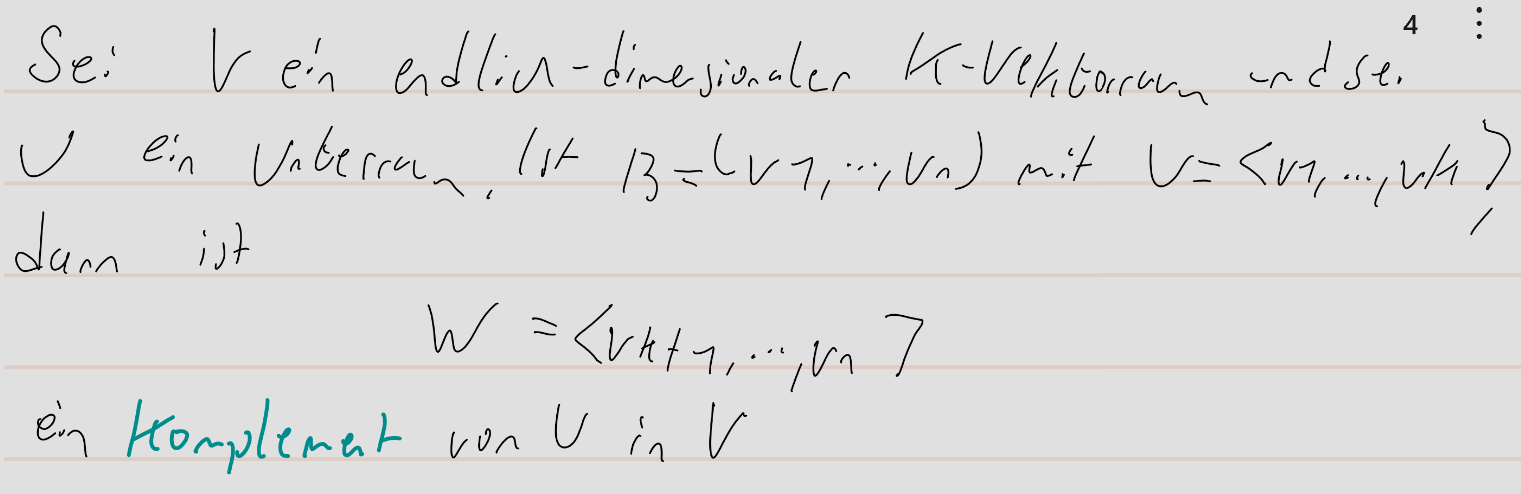 4
Sei V ein endlich-dimensionaler K-Vektorraum und sei
U ein Unterraum. Ist B=(v1,...,vn) mit U=<v1,...,vk>,
dann ist
W = <vk+1,...,vn>
ein Komplement von U in V